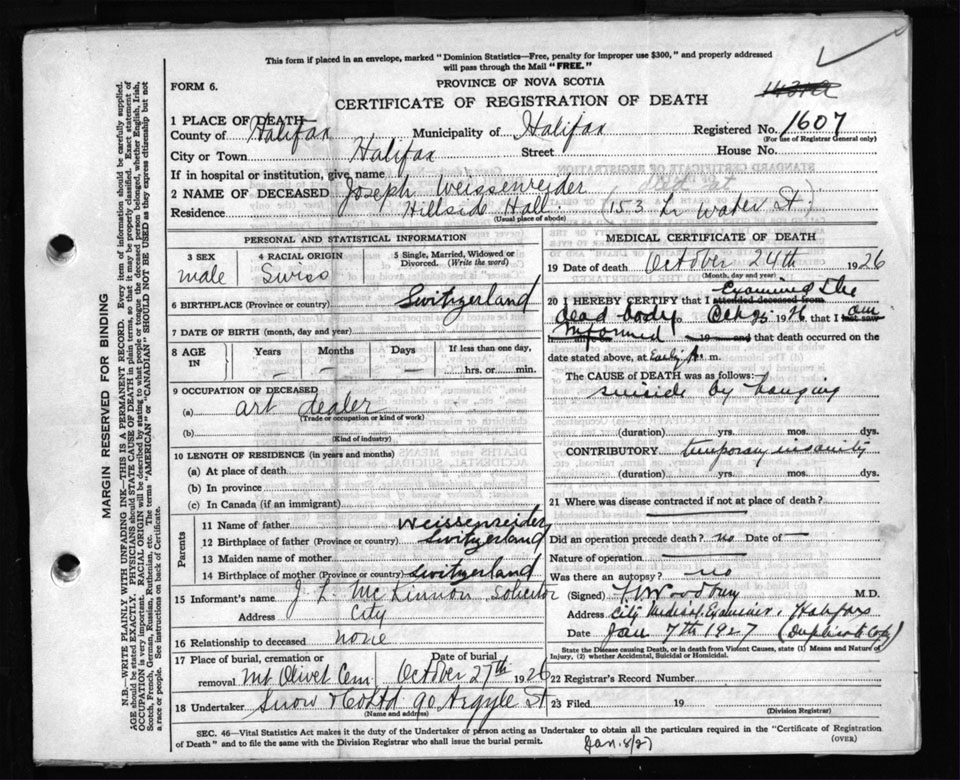 This form if placed in an envelope, marked "Dominion Statistics—Free, penalty for improper use $300," and properly addressed
will pass through the Mail "FREE."
FORM 6.
PROVINCE OF NOVA SCOTIA
CERTIFICATE OF REGISTRATION OF DEATH
1 PLACE OF DEATH—
County of Halifax Municipality of Halifax Registered No. 1607
(For use of Registrar General only)
City or Town Halifax Street House No.
If in hospital or institution, give name
2 NAME OF DECEASED Joseph Weissenreider
Residence Hillside Hall (153 Lr Water St.
(Usual place of abode)
PERSONAL AND STATISTICAL INFORMATION
3 SEX male
4 RACIAL ORIGIN Swiss
5 Single, Married, Widowed or Divorced. (Write the word)
6 BIRTHPLACE (Province or country) Switzerland
7 DATE OF BIRTH (month, day and year)
8 AGE IN
Years Months Days If less than one day,
— — — hrs. or min.
9 OCCUPATION OF DECEASED
(a) art dealer
(Trade or occupation or kind of work)
(b)
(Kind of industry)
10 LENGTH OF RESIDENCE (in years and months)
(a) At place of death
(b) In province
(c) In Canada (if an immigrant)
Parents
11 Name of father Weissenreider
12 Birthplace of father (Province or country) Switzerland
13 Maiden name of mother
14 Birthplace of mother (Province or country) Switzerland
15 Informant's name J. L. McKinnon Solicitor
Address City
16 Relationship to deceased none
17 Place of burial, cremation or Date of burial
removal Mt Olivet Cem October 27th 1926
18 Undertaker Snow & Co Ltd 90 Argyle St
(Name and address)
MEDICAL CERTIFICATE OF DEATH
19 Date of death October 24th 1926
(Month, day and year)
Examined the
20 I HEREBY CERTIFY that I attended deceased from
dead body Oct 25 1926 that I am
last saw
Informed 19 and that death occurred on the
date stated above, at Early m.
The CAUSE OF DEATH was as follows:
suicide by hanging
(duration) yrs. mos. dys.
CONTRIBUTORY temporary insanity
(duration) yrs. mos. dys.
21 Where was disease contracted if not at place of death?
Did an operation precede death? no Date of —
Nature of operation
Was there an autopsy? no
(Signed) M.D.
Address City Medical Examiner, Halifax
Date Jan 7th 1927 (Duplicate Copy)
State the Disease causing Death, or in death from Violent Causes, state (1) Means and Nature of
Injury, (2) whether Accidental, Suicidal or Homicidal.
22 Registrar's Record Number
23 Filed 19
(Division Registrar)
SEC. 46—Vital Statistics Act makes it the duty of the Undertaker or person acting as Undertaker to obtain all the particulars required in the "Certificate of Registration
of Death" and to file the same with the Division Registrar who shall issue the burial permit.
(OVER)
Jan. 8/27
MARGIN RESERVED FOR BINDING
N.B.—WRITE PLAINLY WITH UNFADING INK—THIS IS A PERMANENT RECORD. Every item of information should be carefully supplied.
AGE should be stated EXACTLY. PHYSICIANS should STATE CAUSE OF DEATH in plain terms, so that it may be properly classified. Exact statement of
OCCUPATION is very important. RACIAL ORIGIN will be described by stating to what people or tongue the deceased person belonged, whether English, Irish,
Scotch, French, German, Russian, Ruthenian, etc. The terms "AMERICAN" or "CANADIAN" SHOULD NOT BE USED as they express citizenship but not
a race or people. See instructions on back of Certificate.